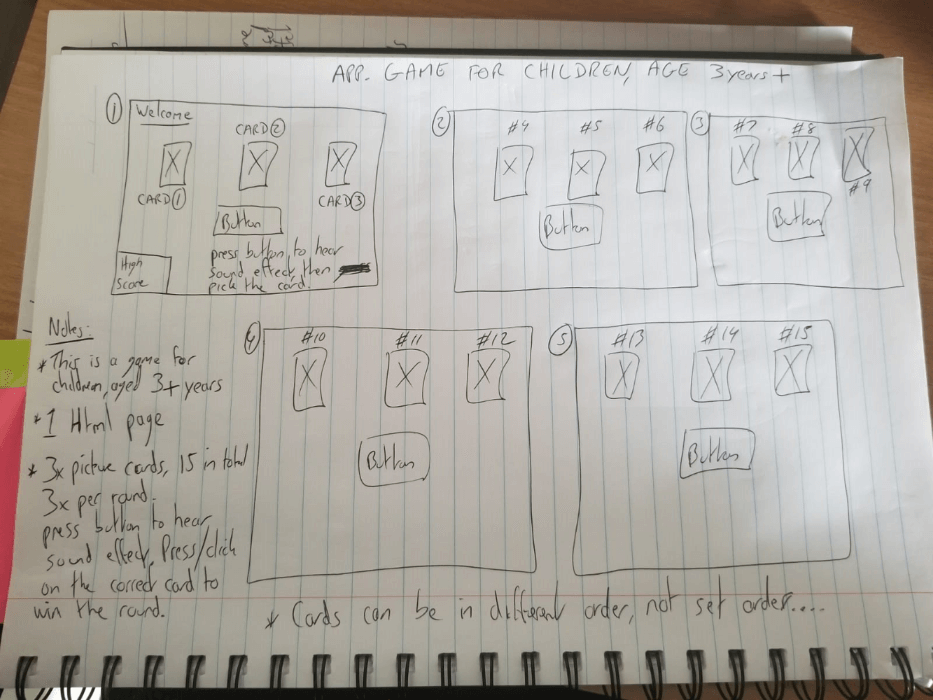 APP. GAME FOR CHILDREN, AGE 3years+
① Welcome
CARD②
X X X
CARD① CARD③
Button
press button, to hear
sound effect, then
pick the card.
High
Score
② #4 #5 #6
X X X
Button
③ #7 #8
X X X
#9
Button
Notes:
* This is a game for
children, aged 3+ years
* 1 Html page
* 3x picture cards, 15 in total
3x per round.
press button to hear
sound effect, Press/click
on the correct card to
win the round.
④ #10 #11 #12
X X X
Button
⑤ #13 #14 #15
X X X
Button
* Cards can be in different order, not set order....